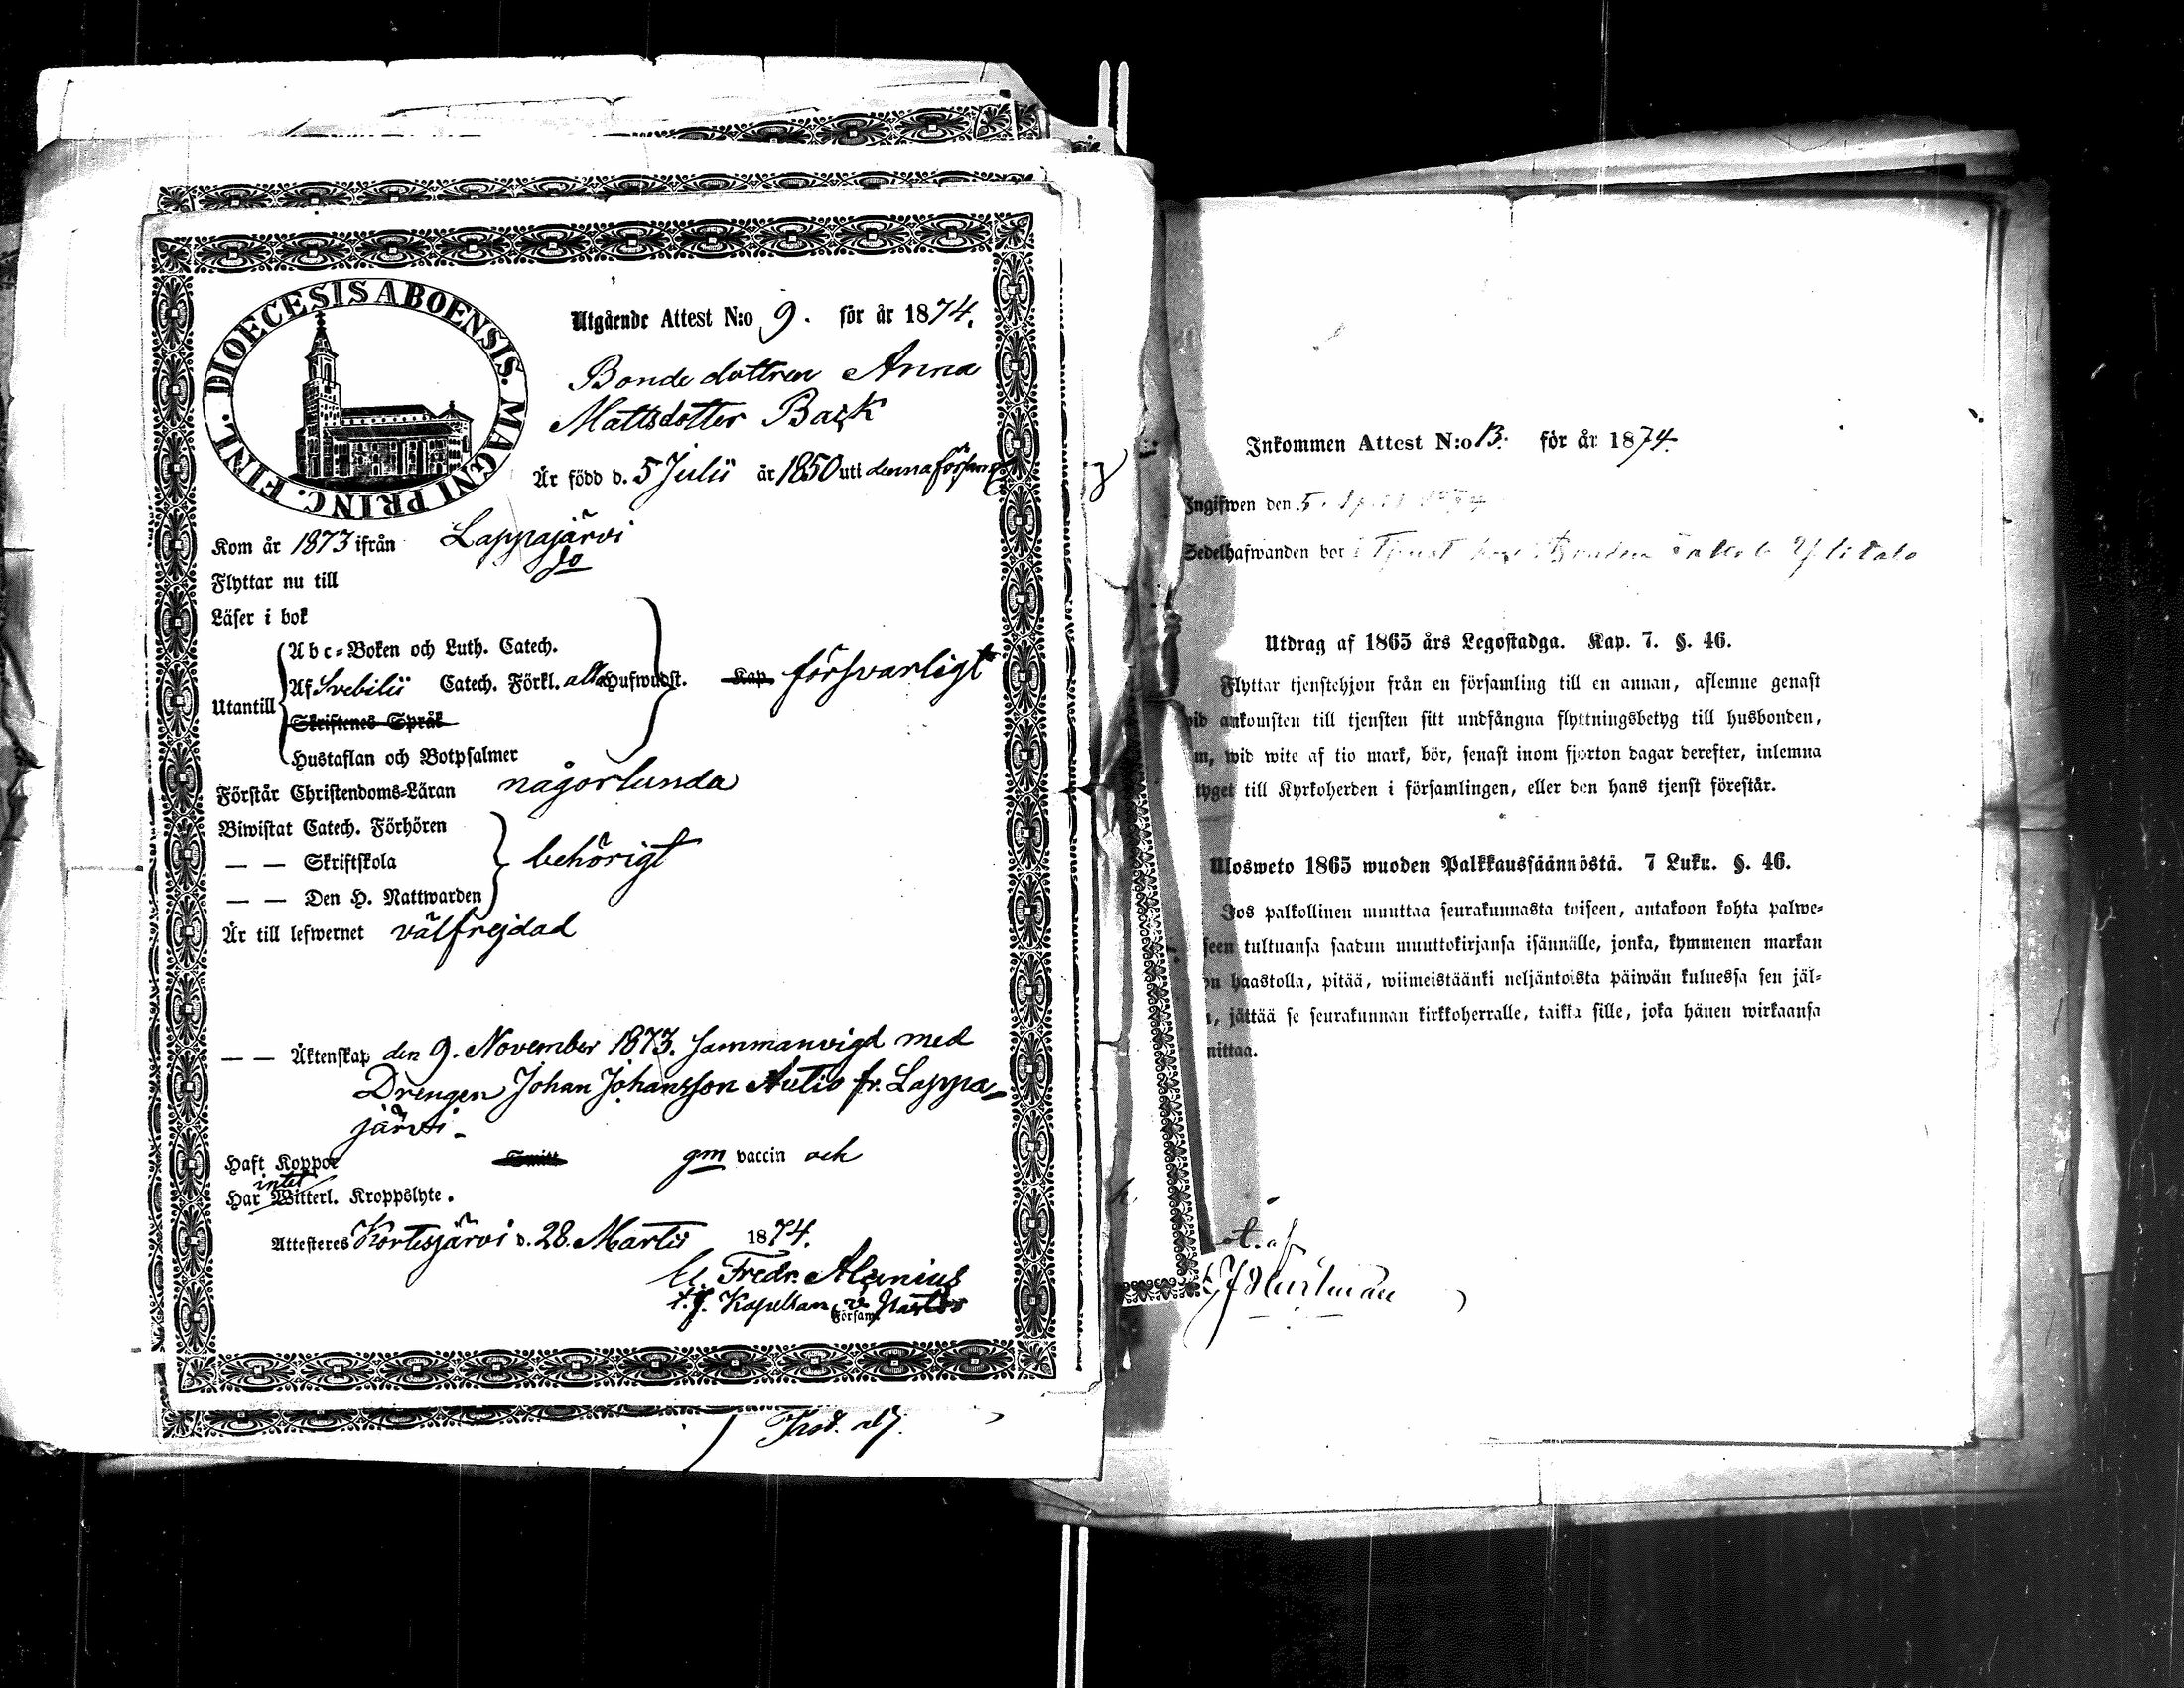 DIOECESIS ABOENSIS. MAGNI PRINC. FINL.
Utgående Attest N:o 9. för år 1874.
Bondedottren Anna
Mattsdotter Back
Är född d. 5 Julii år 1850 uti denna förs
Kom år 1873 ifrån Lappajärvi
Flyttar nu till do
Läser i bok
Abc-Boken och Luth. Catech.
Utantill Af Svebilii Catech. Förkl. alla Hufwudst. Kap. försvarligt
Skriftenes Språk
Hustaflan och Botpsalmer
Förstår Christendoms-Läran någorlunda
Biwistat Catech. Förhören
— — Skriftskola behörigt
— — Den H. Nattwarden
Är till lefwernet välfrejdad
— — Äktenskap den 9. November 1873. sammanvigd med
Drengen Johan Johansson Autio fr. Lappa-
järvi-
Haft Koppor Smitt gm vaccin och
Har intet Witterl. Kroppslyte.
Attesteres Kortesjärvi d. 28. Martii 1874.
Fredr. Alcenius
t.f. Kapellan
Församl.
Inkommen Attest N:o 13. för år 1874.
Ingifwen den 5. April 1874
Sedelhafwanden bor i Tjenst hos Bonden Ylitalo
Utdrag af 1865 års Legostadga. Kap. 7. §. 46.
Flyttar tjenstehjon från en församling till en annan, aflemne genast
wid ankomsten till tjensten sitt undfångna flyttningsbetyg till husbonden,
m, wid wite af tio mark, bör, senast inom fjorton dagar derefter, inlemna
tyget till Kyrkoherden i församlingen, eller den hans tjenst förestår.
Ulosweto 1865 wuoden Palkkaussäännöstä. 7 Luku. §. 46.
Jos palkollinen muuttaa seurakunnasta toiseen, antakoon kohta palwe-
seen tultuansa saadun muuttokirjansa isännälle, jonka, kymmenen markan
on haastolla, pitää, wiimeistäänki neljäntoista päiwän kuluessa sen jäl-
n, jättää se seurakunnan kirkkoherralle, taikka sille, joka hänen wirkaansa
mittaa.